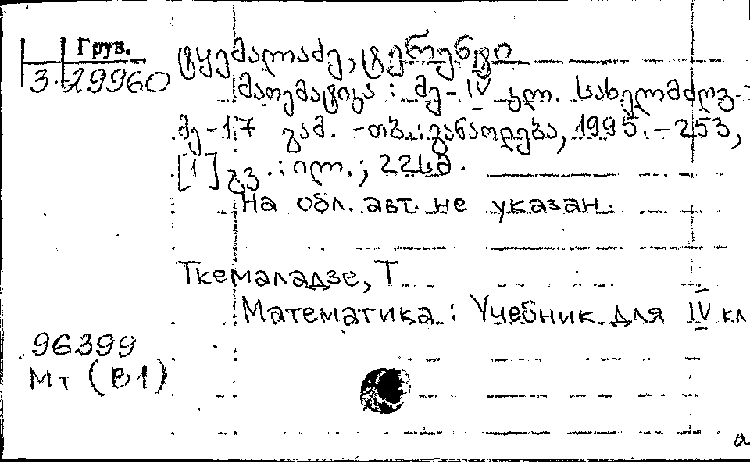 Груз.
3.29960
ტყემალაძე, ტერენტი
მათემატიკა : მე-IV კლ. სახელმძღვ.-
მე-17 გამ. -თბ.:განათლება, 1995.-253,
[1] გვ. : ილ. ; 22სმ.
На обл. авт. не указан.
Ткемаладзе, Т
Математика : Учебник для IV кл
96399
Мт (В1)